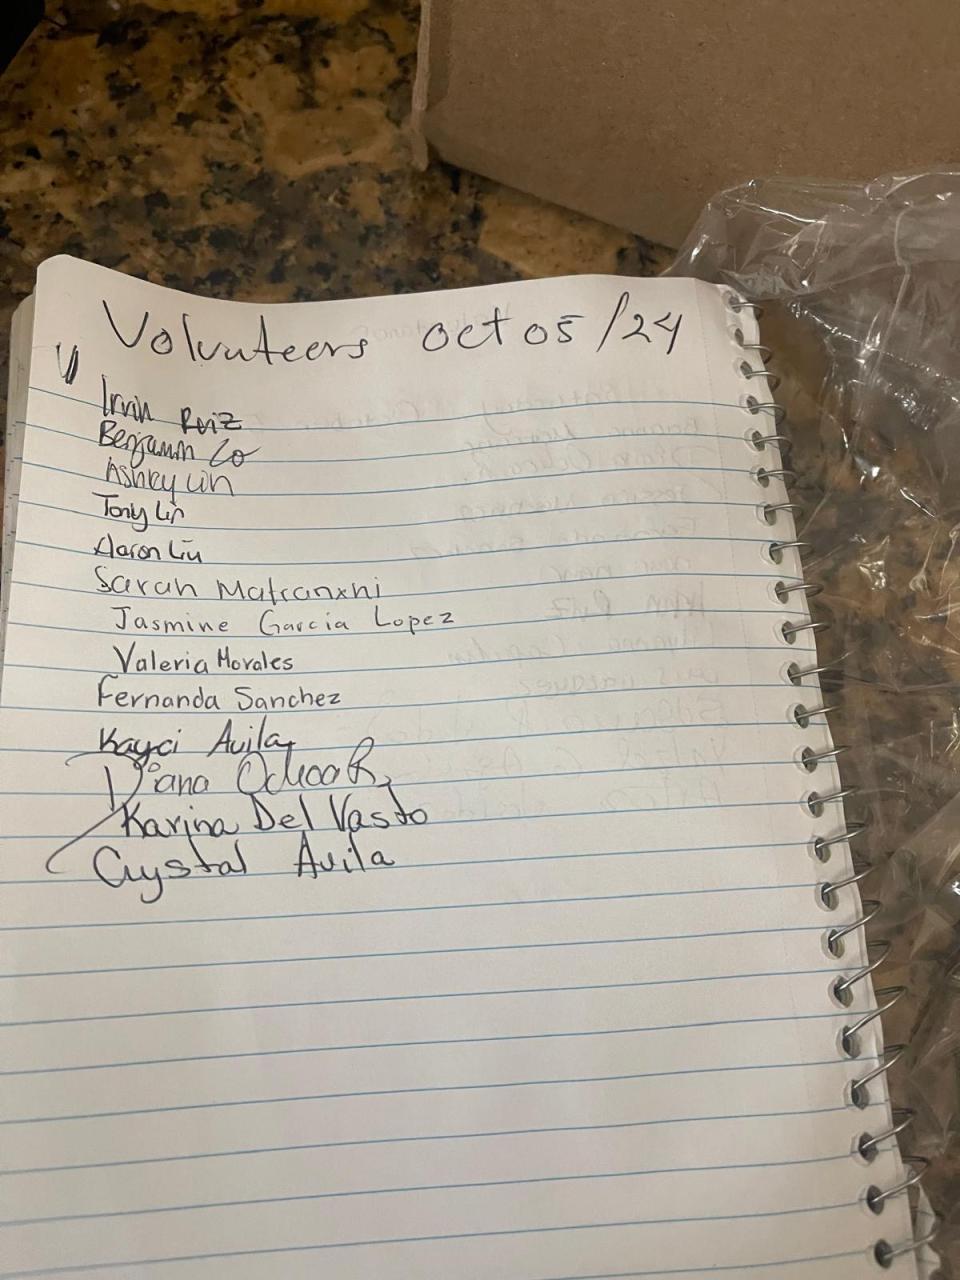 Voluteers Oct 05/24
Irvin Ruiz
Benjamin Co
Ashley Lin
Tony Lin
Aaron Liu
Sarah Matranxhi
Jasmine Garcia Lopez
Valeria Morales
Fernanda Sanchez
Kayci Avila
Diana Ochoa R.
Karina Del Vasto
Crystal Avila